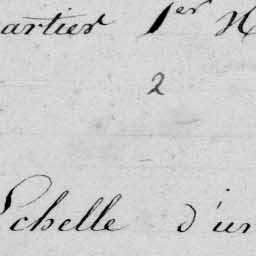 artier 1er N
2
Echelle d'un